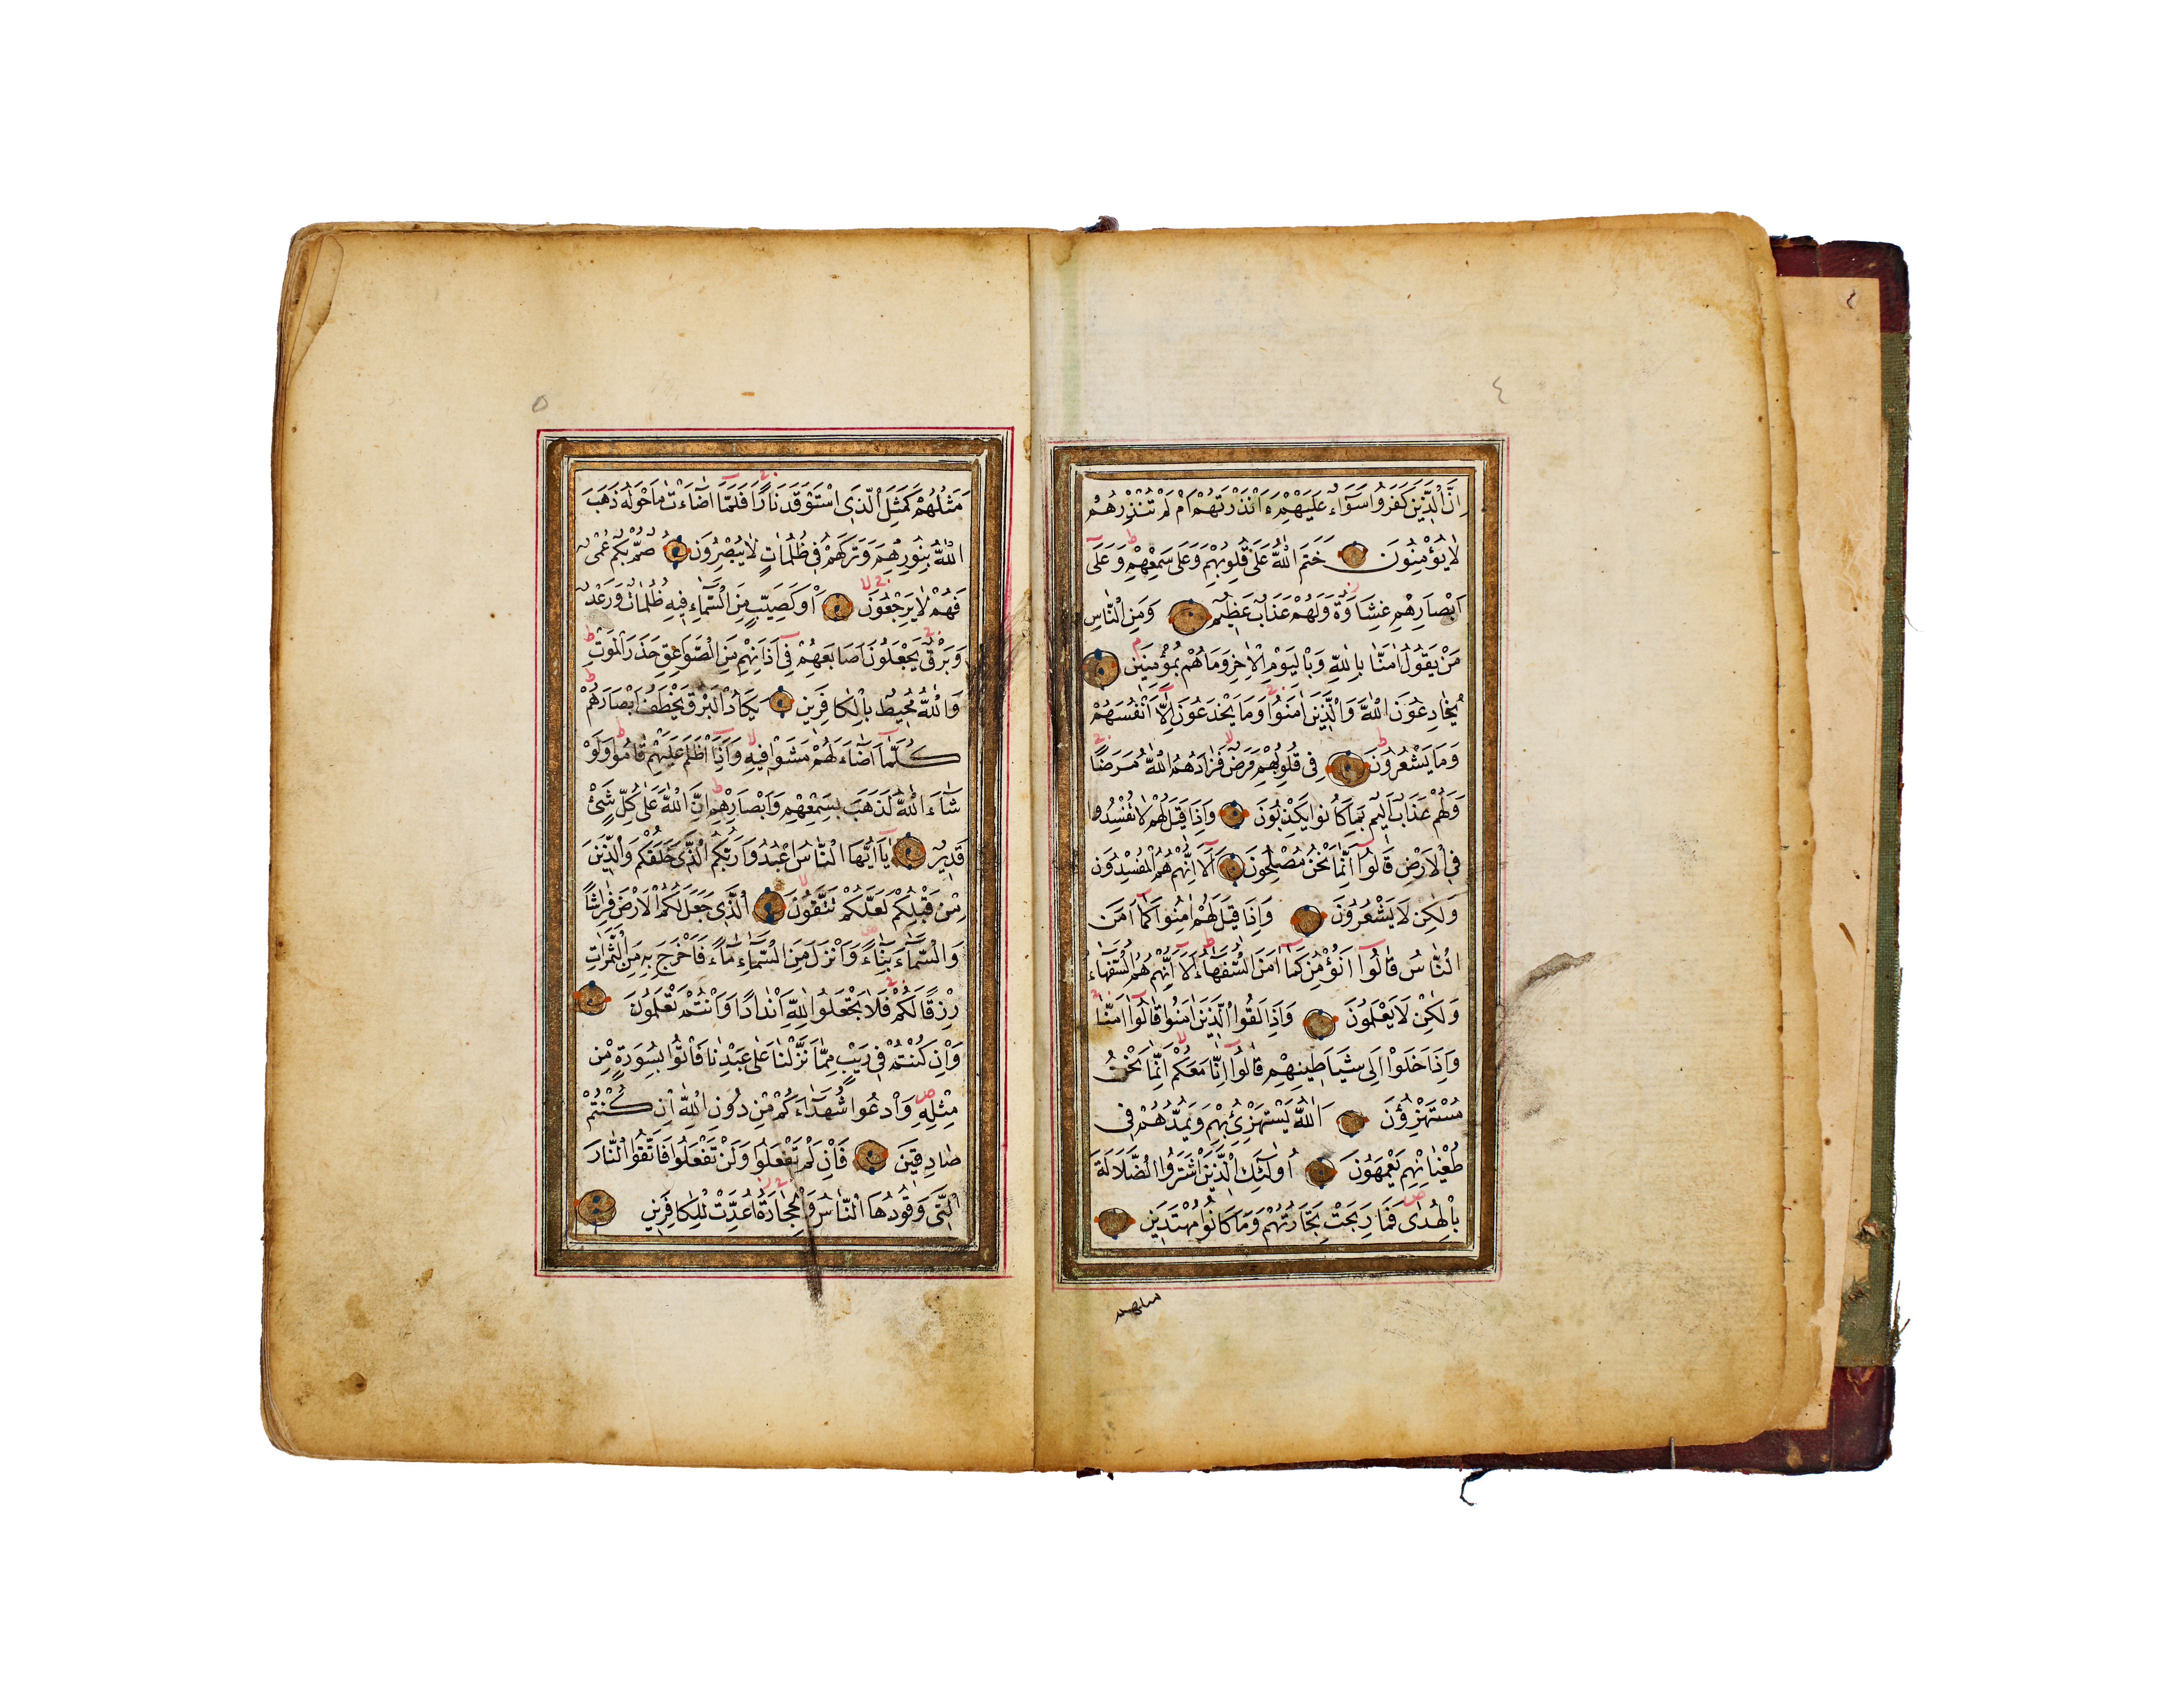 ٤
اِنَّ الَّذِينَ كَفَرُوا سَوَآءٌ عَلَيْهِمْ ءَاَنْذَرْتَهُمْ اَمْ لَمْ تُنْذِرْهُمْ
لَا يُؤْمِنُونَ خَتَمَ اللّٰهُ عَلٰى قُلُوبِهِمْ وَعَلٰى سَمْعِهِمْ وَعَلٰٓى
اَبْصَارِهِمْ غِشَاوَةٌ وَلَهُمْ عَذَابٌ عَظِيمٌ وَمِنَ النَّاسِ
مَنْ يَقُولُ اٰمَنَّا بِاللّٰهِ وَبِالْيَوْمِ الْاٰخِرِ وَمَا هُمْ بِمُؤْمِنِينَ
يُخَادِعُونَ اللّٰهَ وَالَّذِينَ اٰمَنُوا وَمَا يَخْدَعُونَ اِلَّٓا اَنْفُسَهُمْ
وَمَا يَشْعُرُونَ فِى قُلُوبِهِمْ مَرَضٌ فَزَادَهُمُ اللّٰهُ مَرَضًا
وَلَهُمْ عَذَابٌ اَلِيمٌ بِمَا كَانُوا يَكْذِبُونَ وَاِذَا قِيلَ لَهُمْ لَا تُفْسِدُوا
فِى الْاَرْضِ قَالُوٓا اِنَّمَا نَحْنُ مُصْلِحُونَ اَلَٓا اِنَّهُمْ هُمُ الْمُفْسِدُونَ
وَلٰكِنْ لَا يَشْعُرُونَ وَاِذَا قِيلَ لَهُمْ اٰمِنُوا كَمَٓا اٰمَنَ
النَّاسُ قَالُوٓا اَنُؤْمِنُ كَمَٓا اٰمَنَ السُّفَهَٓاءُ اَلَٓا اِنَّهُمْ هُمُ السُّفَهَٓاءُ
وَلٰكِنْ لَا يَعْلَمُونَ وَاِذَا لَقُوا الَّذِينَ اٰمَنُوا قَالُوٓا اٰمَنَّا
وَاِذَا خَلَوْا اِلٰى شَيَاطِينِهِمْ قَالُوٓا اِنَّا مَعَكُمْ اِنَّمَا نَحْنُ
مُسْتَهْزِؤُنَ اَللّٰهُ يَسْتَهْزِئُ بِهِمْ وَيَمُدُّهُمْ فِى
طُغْيَانِهِمْ يَعْمَهُونَ اُولٰٓئِكَ الَّذِينَ اشْتَرَوُا الضَّلَالَةَ
بِالْهُدٰى فَمَا رَبِحَتْ تِجَارَتُهُمْ وَمَا كَانُوا مُهْتَدِينَ
مثلهم
٥
مَثَلُهُمْ كَمَثَلِ الَّذِى اسْتَوْقَدَ نَارًا فَلَمَّٓا اَضَٓاءَتْ مَا حَوْلَهُ ذَهَبَ
اللّٰهُ بِنُورِهِمْ وَتَرَكَهُمْ فِى ظُلُمَاتٍ لَا يُبْصِرُونَ صُمٌّ بُكْمٌ عُمْىٌ
فَهُمْ لَا يَرْجِعُونَ اَوْ كَصَيِّبٍ مِنَ السَّمَٓاءِ فِيهِ ظُلُمَاتٌ وَرَعْدٌ
وَبَرْقٌ يَجْعَلُونَ اَصَابِعَهُمْ فِىٓ اٰذَانِهِمْ مِنَ الصَّوَاعِقِ حَذَرَ الْمَوْتِ
وَاللّٰهُ مُحِيطٌ بِالْكَافِرِينَ يَكَادُ الْبَرْقُ يَخْطَفُ اَبْصَارَهُمْ
كُلَّمَٓا اَضَٓاءَ لَهُمْ مَشَوْا فِيهِ وَاِذَٓا اَظْلَمَ عَلَيْهِمْ قَامُوا وَلَوْ
شَٓاءَ اللّٰهُ لَذَهَبَ بِسَمْعِهِمْ وَاَبْصَارِهِمْ اِنَّ اللّٰهَ عَلٰى كُلِّ شَىْءٍ
قَدِيرٌ يَٓا اَيُّهَا النَّاسُ اعْبُدُوا رَبَّكُمُ الَّذِى خَلَقَكُمْ وَالَّذِينَ
مِنْ قَبْلِكُمْ لَعَلَّكُمْ تَتَّقُونَ اَلَّذِى جَعَلَ لَكُمُ الْاَرْضَ فِرَاشًا
وَالسَّمَٓاءَ بِنَٓاءً وَاَنْزَلَ مِنَ السَّمَٓاءِ مَٓاءً فَاَخْرَجَ بِهِ مِنَ الثَّمَرَاتِ
رِزْقًا لَكُمْ فَلَا تَجْعَلُوا لِلّٰهِ اَنْدَادًا وَاَنْتُمْ تَعْلَمُونَ
وَاِنْ كُنْتُمْ فِى رَيْبٍ مِمَّا نَزَّلْنَا عَلٰى عَبْدِنَا فَاْتُوا بِسُورَةٍ مِنْ
مِثْلِهِ وَادْعُوا شُهَدَٓاءَكُمْ مِنْ دُونِ اللّٰهِ اِنْ كُنْتُمْ
صَادِقِينَ فَاِنْ لَمْ تَفْعَلُوا وَلَنْ تَفْعَلُوا فَاتَّقُوا النَّارَ
الَّتِى وَقُودُهَا النَّاسُ وَالْحِجَارَةُ اُعِدَّتْ لِلْكَافِرِينَ